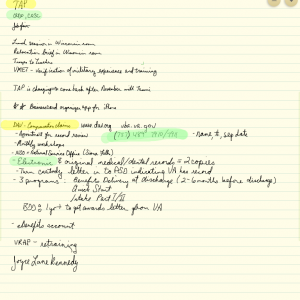 TAP
Job fair
Lunch session in Wisconsin room
Relocation Brief in Wisconsin room
Troops to Teachers
VMET - verification of military experience and training
TAP is changing to come back after November with Transi
** Businesscard manager app for iPhone
DAV - Compensation claims www.dav.org vba.va.gov
- Appointment for record review - name, #, sep date
- Monthly workshops
- NSO - National Service Office
- Electronic & original medical/dental records = 2 copies
- Turn custody letter in to PSD indicating VA has record
- 3 programs: Benefits Delivery at discharge (2-6 months before discharge)
Quick Start
BDD: 1 yr → to get awards letter from VA
- ebenefits account
VRAP - retraining
Joyce Lane Kennedy